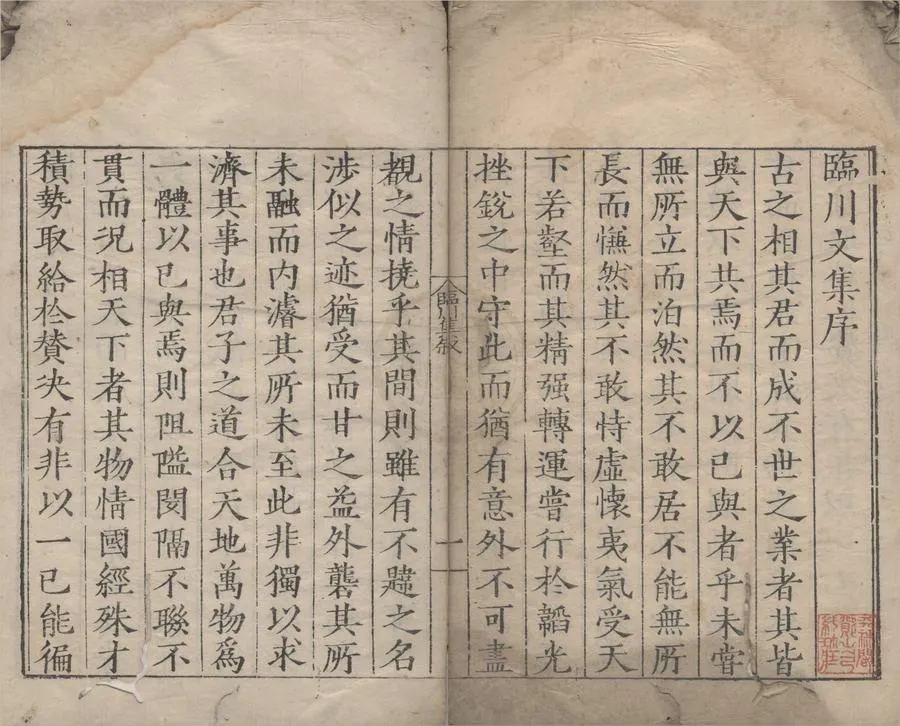 臨川文集序
古之相其君而成不世之業者其皆
與天下共焉而不以己與者乎未甞
無所立而泊然其不敢居不能無所
長而憮然其不敢恃虛懷夷氣受天
下若壑而其精强轉運嘗行於韜光
挫銳之中守此而猶有意外不可盡
臨川集叙
一
覩之情撓乎其間則雖有不韙之名
涉似之迹猶受而甘之益外礱其所
未融而內濬其所未至此非獨以求
濟其事也君子之道合天地萬物爲
一體以己與焉則阻隘閡隔不聯不
貫而況相天下者其物情國經殊才
積勢取給於贊決有非以一己能徧